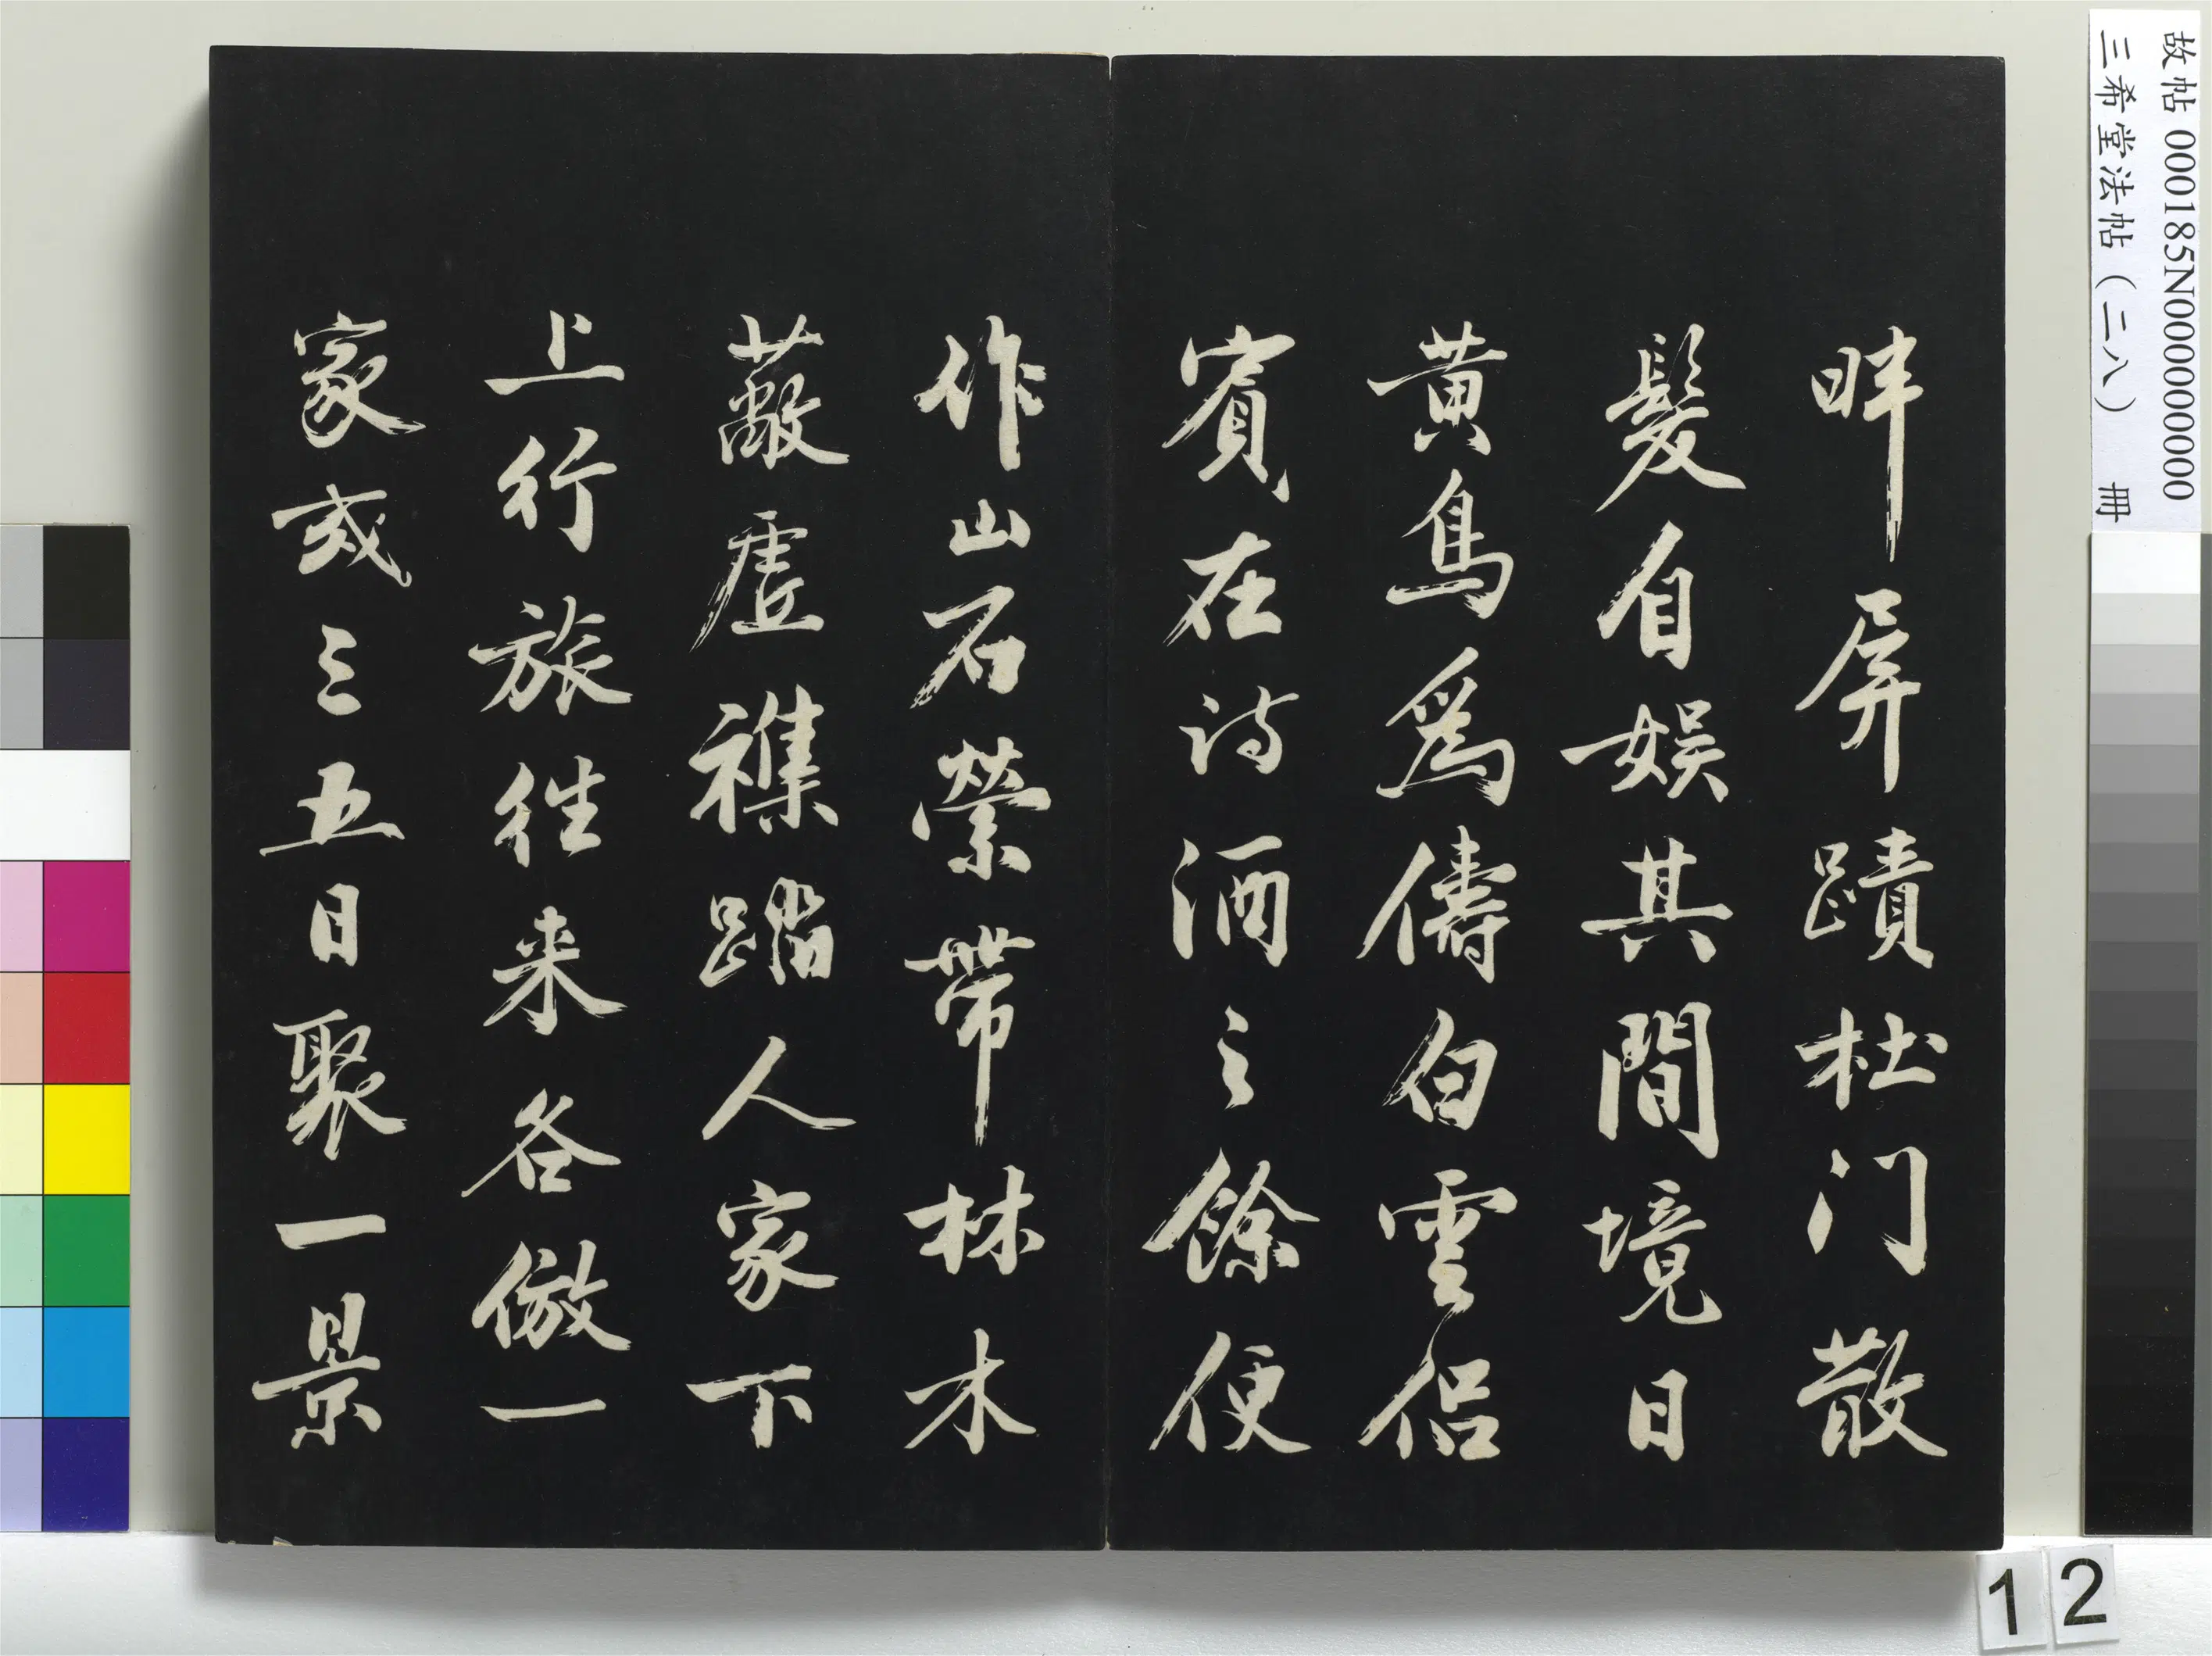 畔屏蹟杜门散
髮自娛其間境日
黄鳥為儔白雲侣
賓在诗酒之餘便
作山石縈帶林木
蔽虛襍踏人家下
上行旅往来各倣一
家或三五日聚一景
故帖 000185N000000000
三希堂法帖（二八） 冊
12